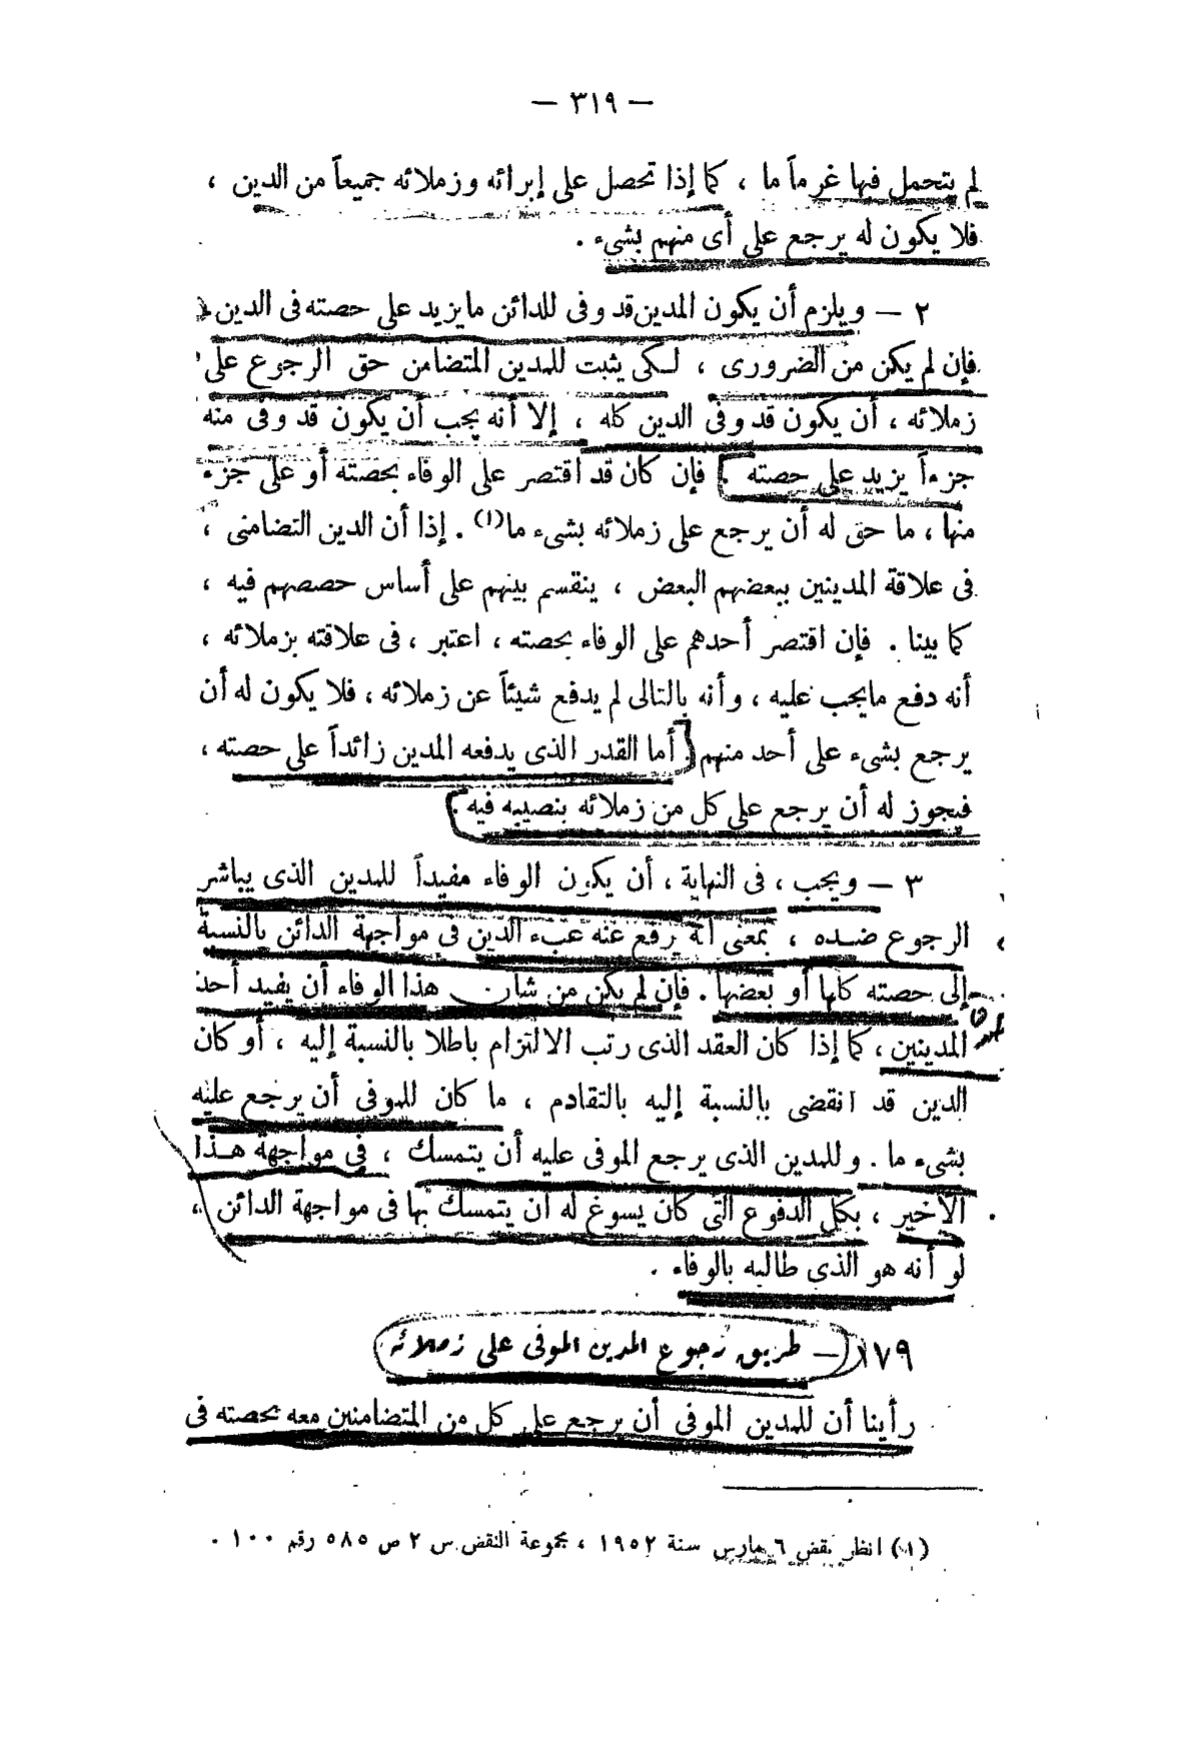 — ٣١٩ —
لم يتحمل فيها غرماً ما ، كما إذا تحصل على إبرائه وزملائه جميعاً من الدين ،
فلا يكون له يرجع على أى منهم بشىء .
٢ — ويلزم أن يكون المدين قد وفى للدائن ما يزيد على حصته فى الدين .
فإن لم يكن من الضرورى ، لكى يثبت للمدين المتضامن حق الرجوع على
زملائه ، أن يكون قد وفى الدين كله ، إلا أنه يجب أن يكون قد وفى منه
جزءاً يزيد على حصته . فإن كان قد اقتصر على الوفاء بحصته أو على جزء
منها ، ما حق له أن يرجع على زملائه بشىء ما(١) . إذا أن الدين التضامنى ،
فى علاقة المدينين ببعضهم البعض ، ينقسم بينهم على أساس حصصهم فيه ،
كما بينا . فإن اقتصر أحدهم على الوفاء بحصته ، اعتبر ، فى علاقته بزملائه ،
أنه دفع مايجب عليه ، وأنه بالتالى لم يدفع شيئاً عن زملائه ، فلا يكون له أن
يرجع بشىء على أحد منهم . أما القدر الذى يدفعه المدين زائداً على حصته ،
فيجوز له أن يرجع على كل من زملائه بنصيبه فيه .
٣ — ويجب ، فى النهاية ، أن يكون الوفاء مفيداً للمدين الذى يباشر
الرجوع ضده ، بمعنى أنه يرفع عنه عبء الدين فى مواجهة الدائن بالنسبة
إلى حصته كلها أو بعضها . فإن لم يكن من شأن هذا الوفاء أن يفيد أحد
المدينين ، كما إذا كان العقد الذى رتب الالتزام باطلا بالنسبة إليه ، أو كان
الدين قد انقضى بالنسبة إليه بالتقادم ، ما كان للموفى أن يرجع عليه
بشىء ما . وللمدين الذى يرجع الموفى عليه أن يتمسك ، فى مواجهة هذا
الأخير ، بكل الدفوع التى كان يسوغ له أن يتمسك بها فى مواجهة الدائن ،
لو أنه هو الذى طالبه بالوفاء .
١٧٩ — طريق رجوع المدين الموفى على زملائه
رأينا أن للمدين الموفى أن يرجع على كل من المتضامنين معه بحصته فى
(١) انظر نقض ٦ مارس سنة ١٩٥٢ ، مجموعة النقض س ٢ ص ٥٨٥ رقم ١٠٠ .